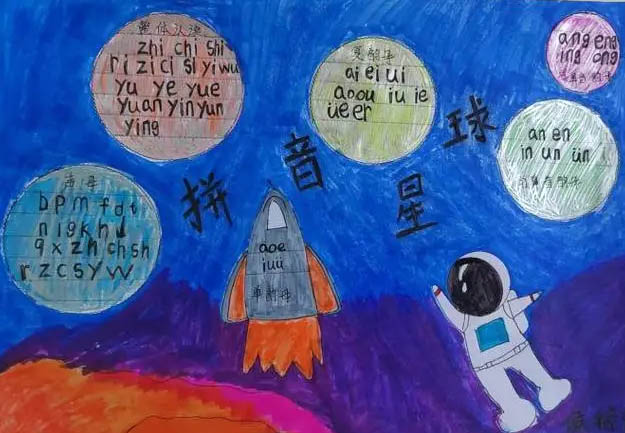 整体认读
zhi chi shi
ri zi ci si yi wu
yu ye yue
yuan yin yun
ying
复韵母
ai ei ui
ao ou iu ie
üe er
ang eng
ing ong
后鼻韵母
an en
in un ün
前鼻韵母
声母
b p m f d t
n l g k h j
q x zh ch sh
r z c s y w
拼音星球
a o e
i u ü
单韵母